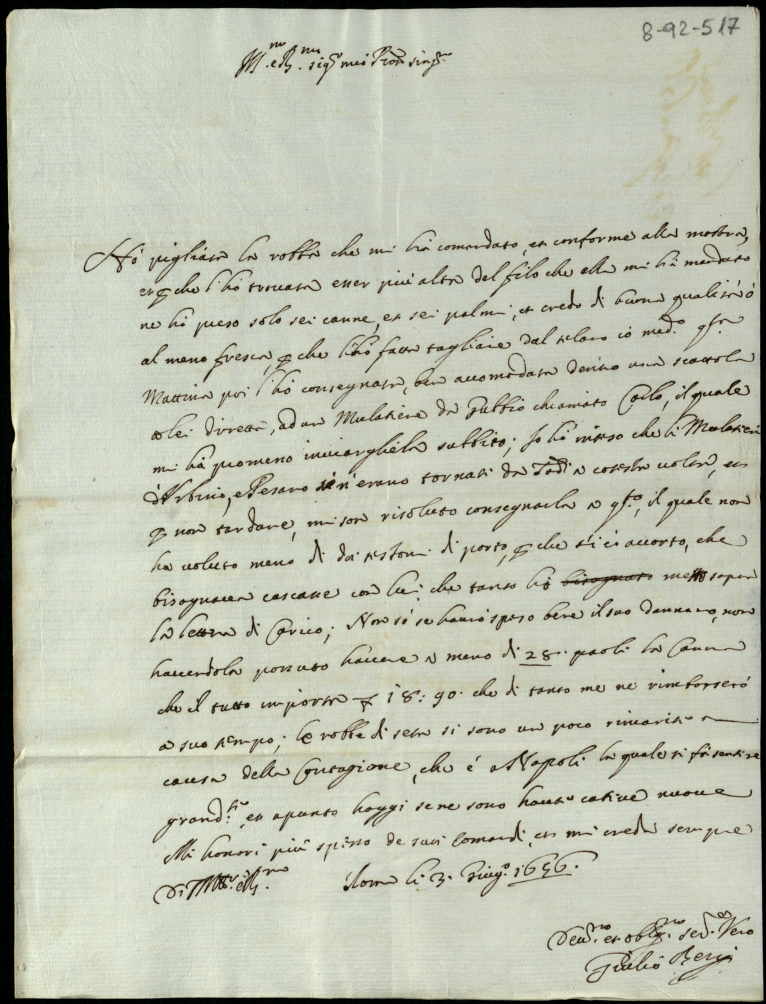 8-92-517
M.to e R.mo sig.r mio P.ron sing.mo
Hò pigliata la robba che mi hà comandato, et conforme alla mostra,
et p che l'hò trovata esser più alta del filo che ella mi hà mandato
ne hò preso solo sei canne, et sei palmi, et credo di buona qualità ò
al meno fresca, p che l'hò fatta tagliare dal telaro io med.o q.sta
Mattina poi l'hò consegnata, ben accomodata dentro una scattola
à lei diretta, ad un Mulatiere da Gubbio chiamato Carlo, il quale
mi hà promesso inviargliela subbito; Io hò inteso che li Mulatieri
d'Urbino, e Pesaro se n'erano tornati da Todi a cotesta volta, et
p non tardare, mi son risoluto consegnarla a q.sto, il quale non
ha voluto meno di doi testoni di porto, p che si è accorto, che
bisognava cascare con lui, che tanto hò bisognato metto sopra
la lettera di Carico; Non sò se haverò speso bene il suo dannaro, non
havendola possuto havere a meno di 28. paoli la Canna
che il tutto importa 18: 90. che di tanto me ne rimborserò
a suo tempo; le robbe di seta si sono un poco rincarite a
causa della Contagione, che è a Napoli la quale si fà sentire
grand.te, et apunto hoggi se ne sono haute cative nuove
Mi honori più spesso de suoi Comandi, et mi creda sempre
Di V.S. M.to R.
Roma li 3. Giug.o 1656.
Dev.mo et obblig.mo ser.re Vero
Giulio